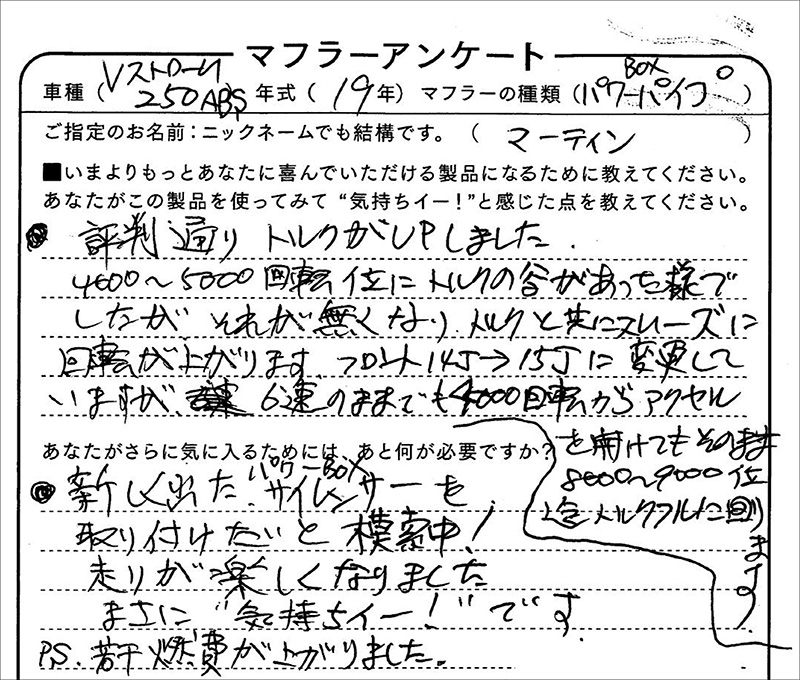 マフラーアンケート
車種（Vストローム250ABS）年式（19年）マフラーの種類（パワーBOXパイプ）
ご指定のお名前：ニックネームでも結構です。（マーティン）
■いまよりもっとあなたに喜んでいただける製品になるために教えてください。
あなたがこの製品を使ってみて“気持ちイー！”と感じた点を教えてください。
● 評判通り トルクがUPしました．
4000～5000回転位にトルクの谷があった様で
したが それが無くなり、トルクと共にスムーズに
回転が上がります。フロント14J→15Jに変更して
いますが、6速のままでも4000回転からアクセル
を開けてもそのまま
8000～9000位
迄トルクフルに回ります。
あなたがさらに気に入るためには、あと何が必要ですか？
● 新しく出た パワーBOXサイレンサーを
取り付けたいと模索中！
走りが楽しくなりました
まさに“気持ちイー！”です．
P.S. 若干燃費が上がりました。